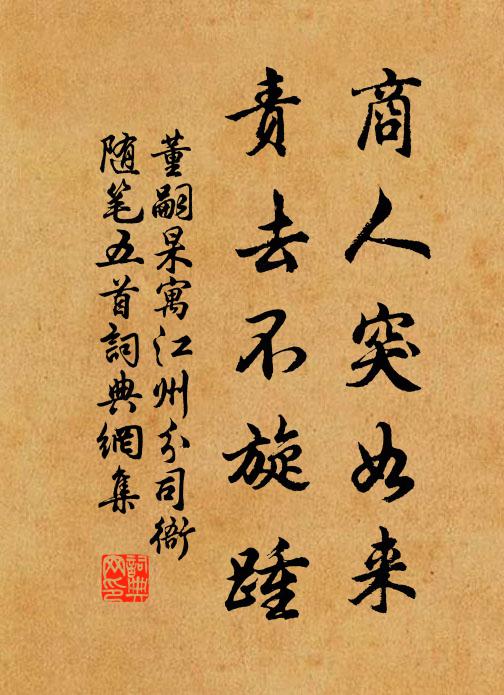 商人突如来
责去不旋踵
董嗣杲寓江州分司衙
随笔五首詞典網集
詞典
网印